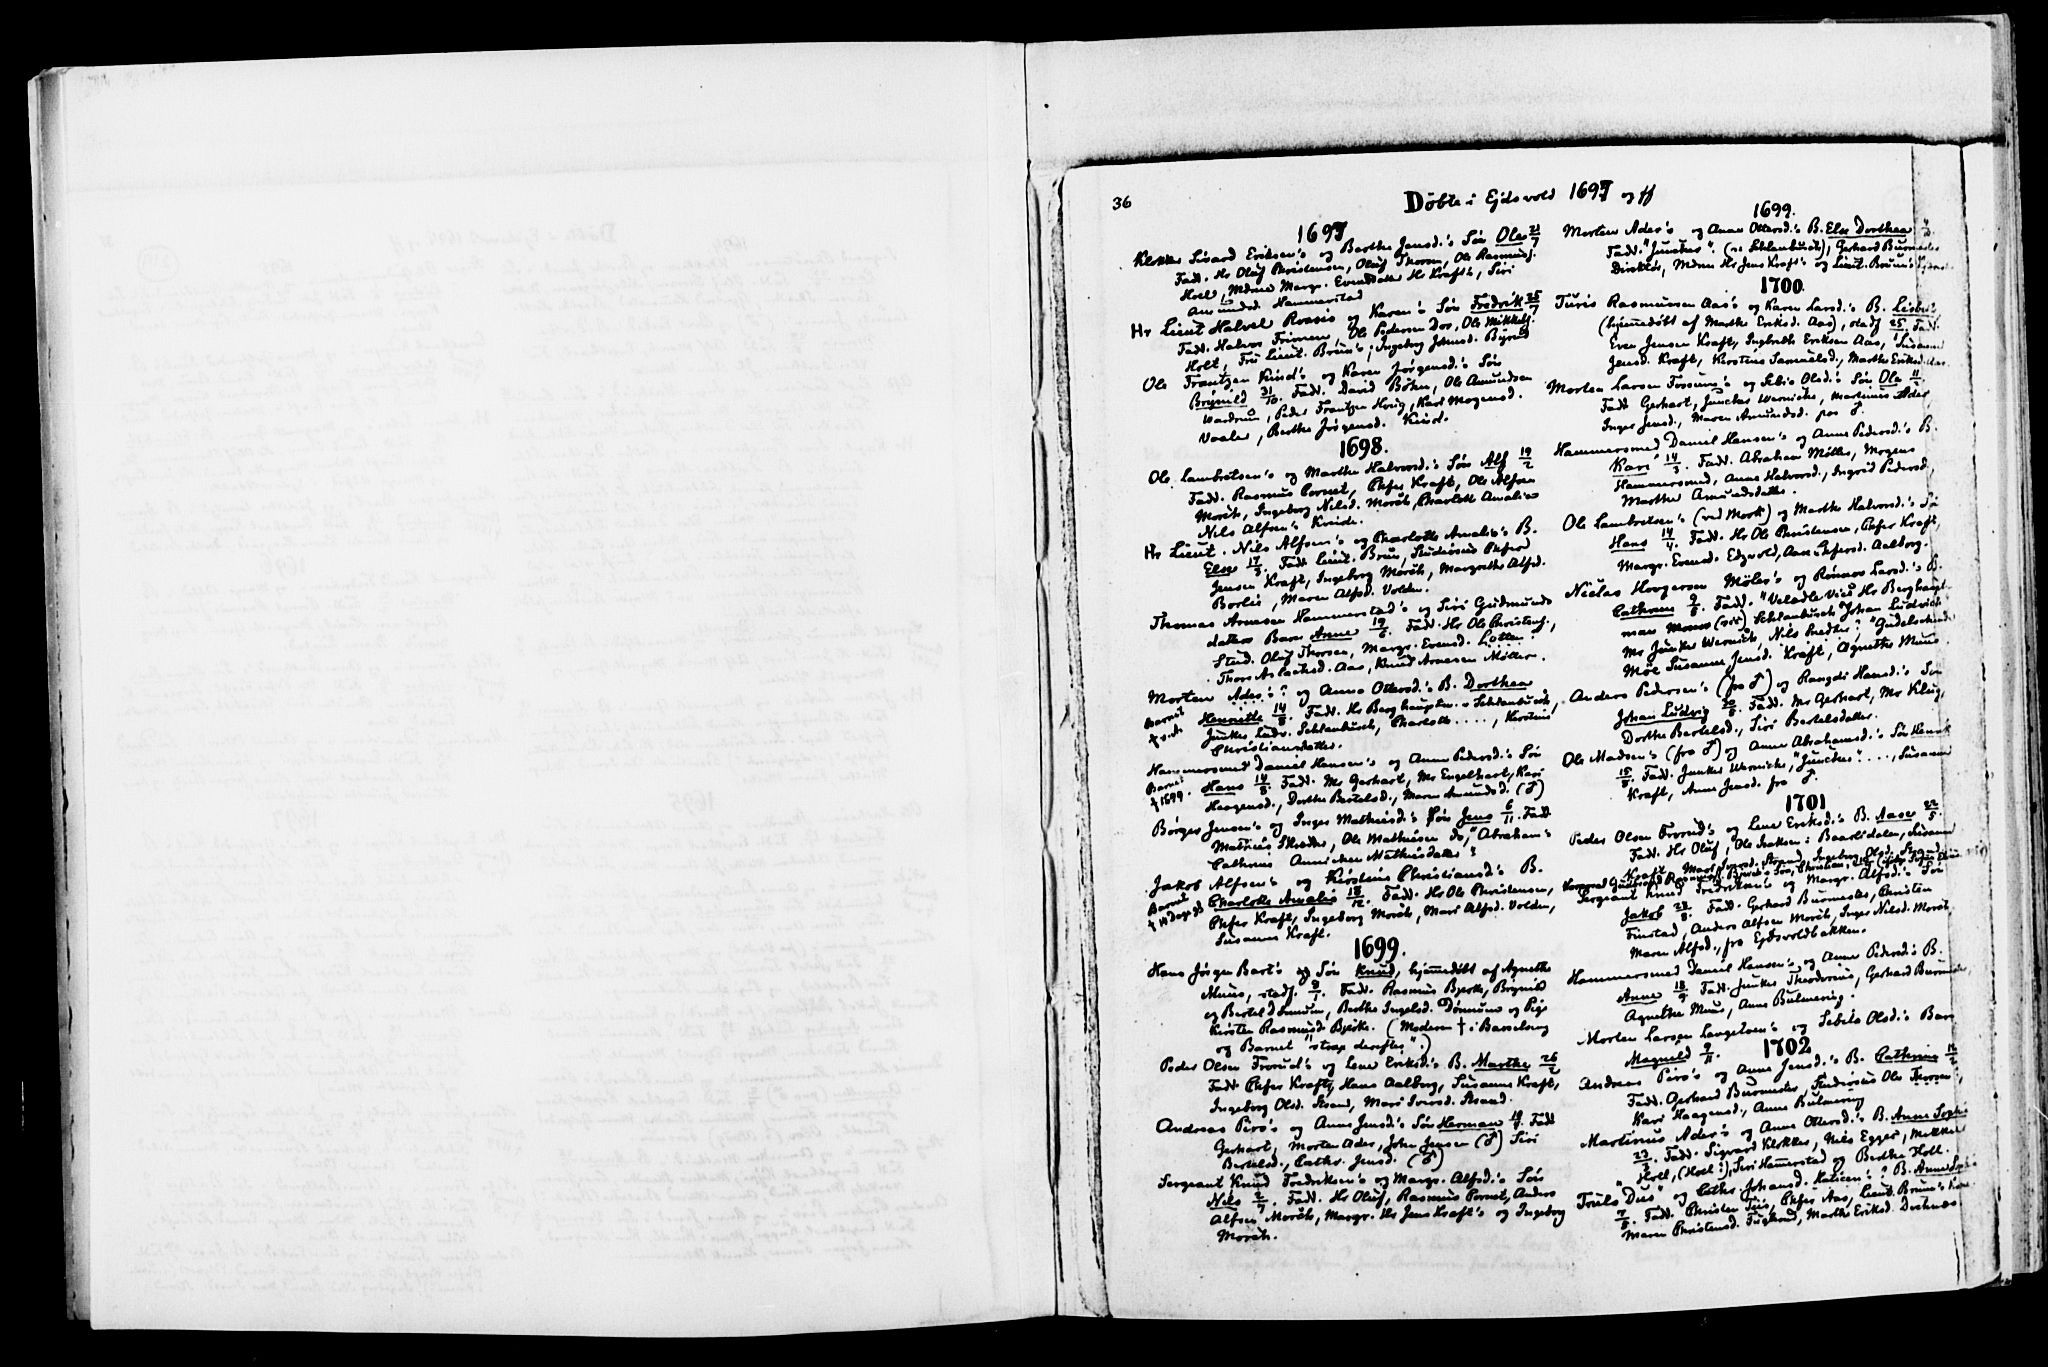 36
Døbte i Ejdsvold 1697 og ff
1697
Klokker Sivard Eriksen's og Berthe Jensd.'s Søn Ole 21/7
Fadt. Hr Oluf Christensen, Oluf Thoron, Ole Rasmusf.
Hoel, Mdme Margr. Evensdatter Hr Kraft's, Siri
Amunded. Hammerstad
Hr Lieut Halvel Roasis og Karen's Søn Fredrik 25/7
Fadt. Halvor Frimen Ole Pedersen Dor, Ole Mikkelf.
Holt, Fru Lieut. Brun's, Ingeborg Johnsd. Byrud
Ole Frantzen Kind's og Karen Jørgensd.'s Søn
Brynild 31/10. Fadt. David Böhn, Ole Amundsen
Vaadrun, Peder Frantzen Hovig, Kari Mogensd.
Vaaler, Berthe Jørgensd. Kind.
1698.
Ole Lambretsen's og Marthe Halvorsd.'s Søn Alf 19/2
Fadt. Rasmus Cornet, Chrfer Kraft, Ole Alfsen
Morch, Ingeborg Nilsd. Morch, Charlott Amalies
Nils Alfsen's Kvinde.
Hr Lieut. Nils Alfsen's og Charlotte Amalie's B.
Else 17/3. Fadt Lieut. Brun, Studiosus Chrfer
Jensen Kraft, Ingeborg Mørch, Margrethe Alfsd.
Borlie, Maren Alfsd. Volden.
Thomas Arnesen Hammerstad's og Siri Gudmunds
datters Barn Anne 19/6. Fadt. Hr Ole Christenf.,
Stud. Oluf Thorsen, Margr. Evensd. Lotten?,
Thore Aslachsd. Aas, Knud Arnesen Møller.
Morten Ades's? og Anna Ottersd.'s B. Dorthea
Barnet
† s.d.
Henriette 14/8. Fadt. Hr Berghauptm. v Schlanbusch,
Junker Ludv. Schlanbusch, Charlotte ...., Kirstine
Christiansdatter.
Hammersmed Daniel Hansen's og Anne Pedersd.'s Søn
Barnet
† 1699.
Hans 14/8. Fadt. Mr Gerhart, Mr Engelhart, Kari
Haagensd., Dorthe Bertelsd., Maren Amundsd. (♂)
Børger Jensen's og Inger Mathiesd.'s Søn Jens 6/11. Fadt
Mathies Skreder, Ole Mathiesen do, "Abraham's
Cathrine Annichen Mathiesdatter?
Jakob Alfsen's og Kirstine Christiansd.'s B.
Barnet
† 14 Dage gl
Charlotte Amalie 18/12. Fadt. Hr Ole Christensen,
Chrfer Kraft, Ingeborg Morch, Mari Alfsd. Volden,
Susanne Kraft.
1699.
Hans Jörgen Bart's og Søn Knud, hjemmedøbt af Agnethe
Muus, stadf. 8/1. Fadt. Rasmus Bjerke, Brynild
og Bertel Dønnum, Berthe Ingelsd. Dønnum og Pige
Kirsten Rasmusd. Bjerke. (Moderen † i Barselseng
og Barnet "strax derefter".)
Peder Olsen Frorud's og Lene Eriksd.'s B. Marthe 26/2
Fadt Chrfer Kraft, Hans Aalborg, Susanne Kraft,
Ingeborg Olsd. Strand, Mari Ivarsd. Strand.
Andreas Piro's og Anne Jensd.'s Søn Herman 19/7. Fadt
Gerhart, Morten Ader, John Jensen (♂) Siri
Bertelsd., Cathr. Jensd. (♂)
Sergeant Knud Fredriksen's og Margr. Alfsd.'s Søn
Nils 2/7. Fadt. Hr Oluf, Rasmus Cornet, Anders
Alfsen Morch, Margr. Hr Jens Kraft's og Ingeborg
Morch.
1699.
Morten Ades's og Anne Ottersd.'s B. Else Dorthea
Fadt. "Juncker". (ve Schlanbusch), Gerhard Burmester
Direktør, Mdme Hr Jens Kraft's og Lieut. Brun's
1700.
Turis Rasmussen Aas's og Karen Larsd.'s B. Lisbet,
(hjemmedøbt af Marthe Eriksd. Aas), stadf 25, Fadt.
Even Jensen Kraft, Ingbreth Eriksen Aas, Susanne
Jensd. Kraft, Kirstine Samuelsd., Marthe Eriksd. Aas.
Morten Larsen Fossum's og Sebie Olsd.'s Søn Ole 11
Fadt Gerhart, Juncker Wernicke, Martinus Ader
Inger Jensd., Maren Amundsd. paa ♂.
Hammersmed Daniel Hansen's og Anne Pedersd.'s B.
Kari 14/3. Fadt. Abraham Møller, Mogens
Hammersmed, Anne Halvorsd., Ingrid Pedersd,
Marthe Amundsdatter.
Ole Lambretsen's (ved Mork) og Marthe Halvorsd.'s Sø
Hans 14/4. Fadt. Hr Ole Christensen, Chrfer Kraft,
Margr. Evensd. Edsvold, Aase Chrfersd. Aalborg.
Niclas Horgersen Møler's og Rönnev Larsd.'s B.
Cathrine 9/5. Fadt. "Veledle Vice Hr Berghaupt-
man Monno (sic) Schlanbusch "Johan Ludvich
Mr Junker Wernich, Nils Snedker? "Gudelschinde
Moe Susanne Jensd. Kraft, Agnethe Muus.
Anders Pedersen's (fra ♂) og Rangdi Hansd.'s Søn
Johan Ludvig 20/5. Fadt. Mr Gerhart, Mr Klug,
Dorthe Bertelsd., Siri Bertelsdatter.
Ole Madsen's (fra ♂) og Anne Abrahamsd.'s Søn Henrik
15/8. Fadt. Junker Wernicke, "Juncker" ...., Susanne
Kraft, Anne Jensd. fra ♂.
1701
Peder Olsen Frorud's og Lene Eriksd.'s B. Aase 22/5
Fadt. Hr Oluf, Ole Isaksen i Baarlidalen, Susanne
Kraft, Mari Ivarsd. Strand, Ingeborg Olsd. Strand
Sergeant Knud Fredriksen's og Margr. Alfsd.'s Søn
Jakob 28/8. Fadt. Gerhard Burmester, Christen
Finstad, Anders Alfsen Morch, Inger Nilsd. Morch,
Maren Alfsd., fra Ejdsvoldbakken.
Hammersmed Daniel Hansen's og Anne Pedersd.'s B.
Anne 18/9 Fadt. Junker Theodorius, Gerhard Burmester,
Agnethe Muus, Anne Bulmering.
Morten Larsen Langelsen's og Sebila Olsd.'s Barn
Magnild 9/11.
1702
Andreas Piro's og Anne Jensd.'s B. Cathrine 12/2
Fadt. Gerhard Burmester, Studiosus Ole Thorsen,
Kari Haagensd., Anne Bulmering
Martinus Ader's og Anne Ottersd.'s B. Anne Sophie
23/3. Fadt. Sigvard Klokker, Nils Egger, Mikkel
Hoel, (Holt?), Siri Hammerstad og Berthe Holt.
"Truls Dus" og Cathr. Johansd. Katicen's? B. Anne Soph
7/5. Fadt. Christen Tüs, Chrfer Aas, Lieut. Brun's Kone
Maren Christensd. Fuglerud, Marthe Eriksd. Dochnaas